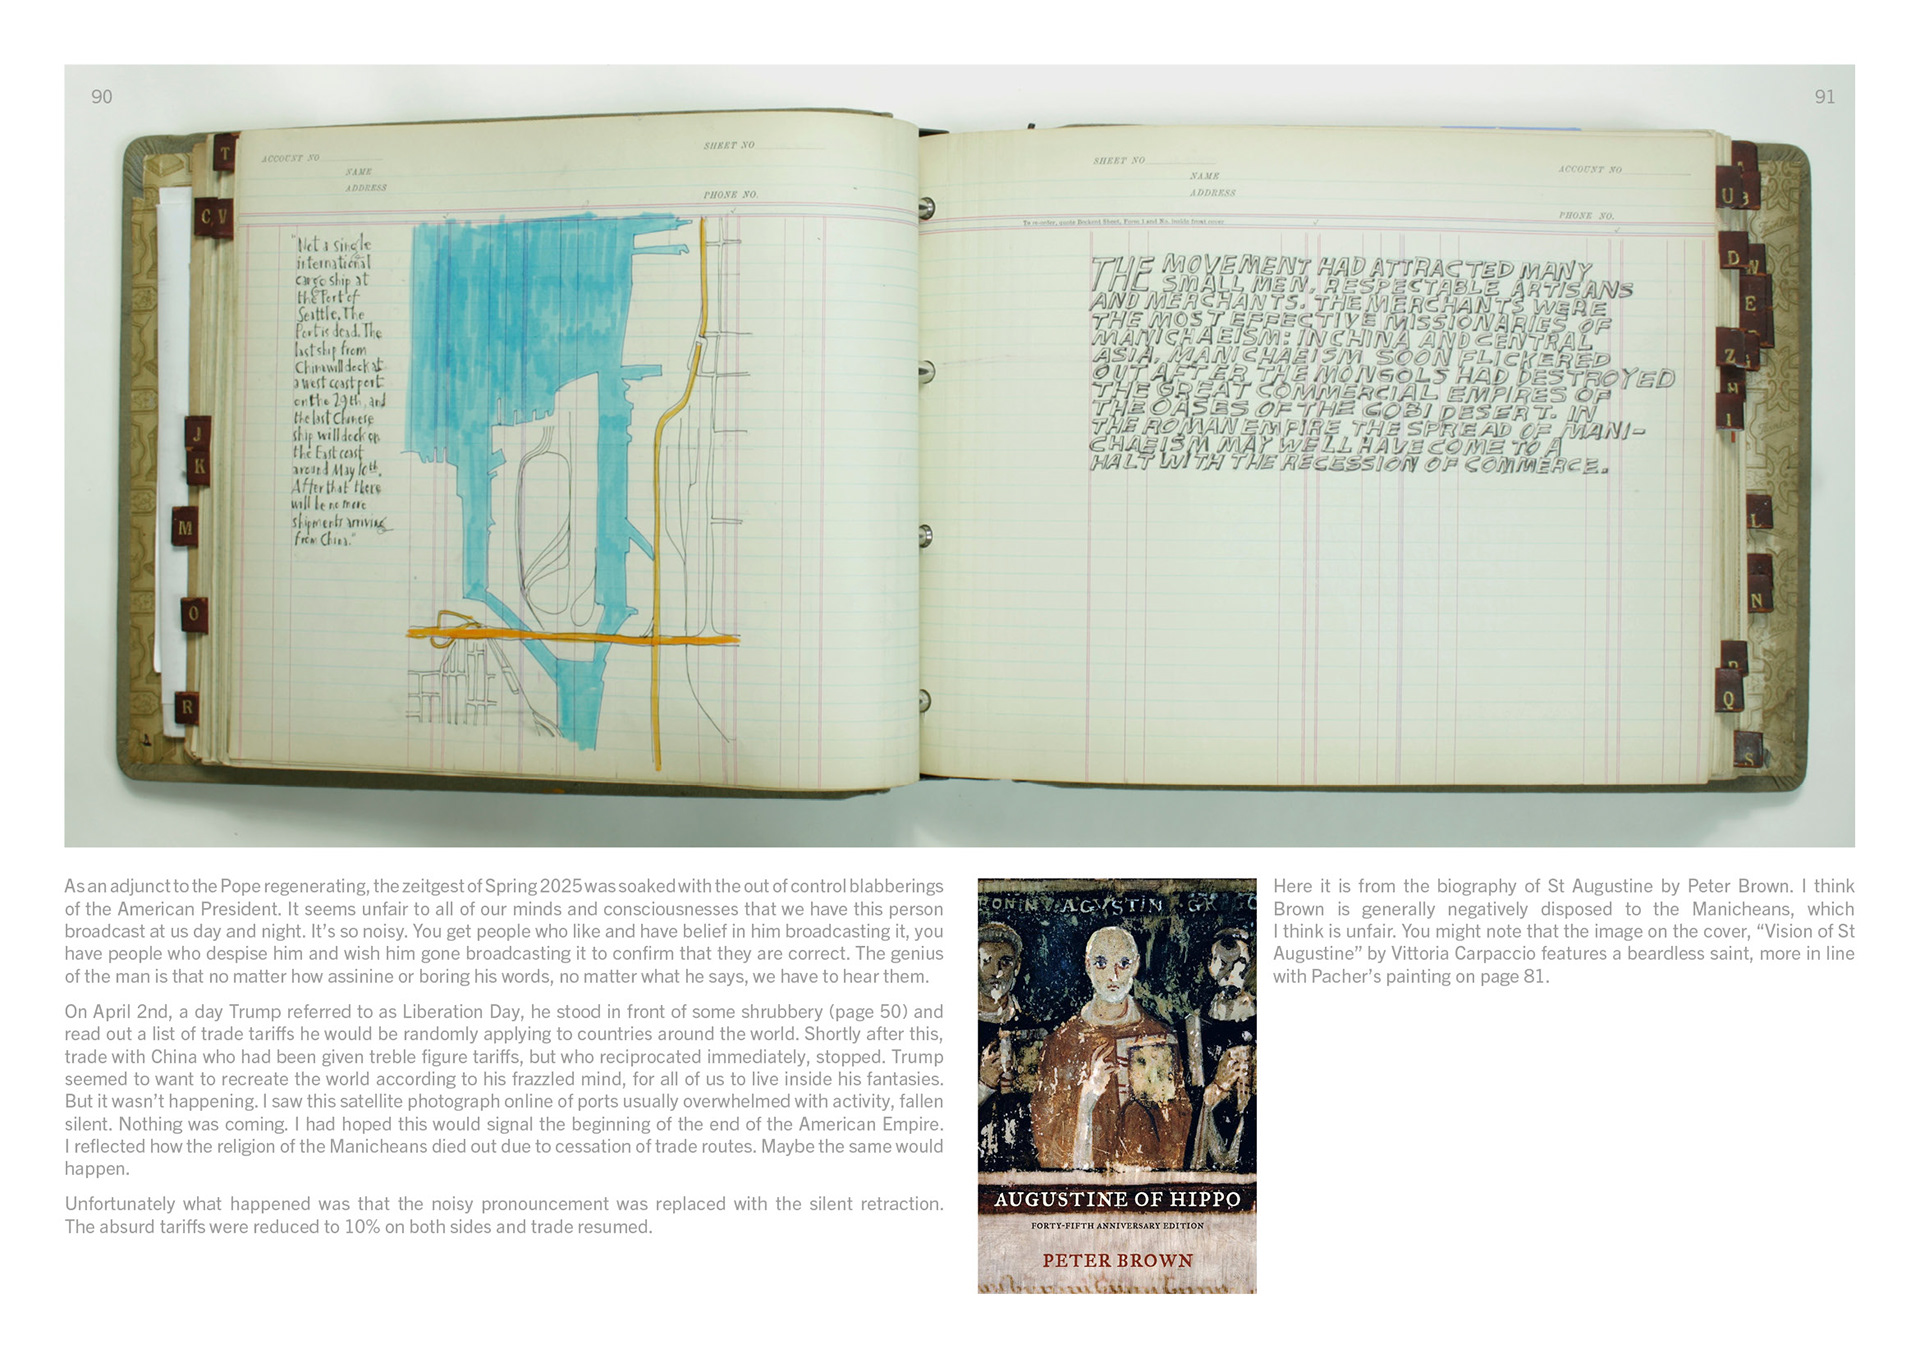 90
91
T
C V
J
K
M
O
R
ACCOUNT NO
NAME
ADDRESS
SHEET NO
PHONE NO.
"Not a single
international
cargo ship at
the Port of
Seattle. The
Port is dead. The
last ship from
China will dock at
a west coast port
on the 29th, and
the last Chinese
ship will dock on
the East coast
around May 10th.
After that there
will be no more
shipments arriving
from China."
SHEET NO
NAME
ADDRESS
ACCOUNT NO
PHONE NO.
To re-order, quote
THE MOVEMENT HAD ATTRACTED MANY
SMALL MEN, RESPECTABLE ARTISANS
AND MERCHANTS. THE MERCHANTS WERE
THE MOST EFFECTIVE MISSIONARIES OF
MANICHAEISM: IN CHINA AND CENTRAL
ASIA, MANICHAEISM SOON FLICKERED
OUT AFTER THE MONGOLS HAD DESTROYED
THE GREAT COMMERCIAL EMPIRES OF
THE OASES OF THE GOBI DESERT. IN
THE ROMAN EMPIRE THE SPREAD OF MANI-
CHAEISM MAY WELL HAVE COME TO A
HALT WITH THE RECESSION OF COMMERCE.
U B
D W
E
Z
H
I
L
N
Q
S
As an adjunct to the Pope regenerating, the zeitgest of Spring 2025 was soaked with the out of control blabberings
of the American President. It seems unfair to all of our minds and consciousnesses that we have this person
broadcast at us day and night. It's so noisy. You get people who like and have belief in him broadcasting it, you
have people who despise him and wish him gone broadcasting it to confirm that they are correct. The genius
of the man is that no matter how assinine or boring his words, no matter what he says, we have to hear them.
On April 2nd, a day Trump referred to as Liberation Day, he stood in front of some shrubbery (page 50) and
read out a list of trade tariffs he would be randomly applying to countries around the world. Shortly after this,
trade with China who had been given treble figure tariffs, but who reciprocated immediately, stopped. Trump
seemed to want to recreate the world according to his frazzled mind, for all of us to live inside his fantasies.
But it wasn't happening. I saw this satellite photograph online of ports usually overwhelmed with activity, fallen
silent. Nothing was coming. I had hoped this would signal the beginning of the end of the American Empire.
I reflected how the religion of the Manicheans died out due to cessation of trade routes. Maybe the same would
happen.
Unfortunately what happened was that the noisy pronouncement was replaced with the silent retraction.
The absurd tariffs were reduced to 10% on both sides and trade resumed.
AGVSTIN
AUGUSTINE OF HIPPO
FORTY-FIFTH ANNIVERSARY EDITION
PETER BROWN
Here it is from the biography of St Augustine by Peter Brown. I think
Brown is generally negatively disposed to the Manicheans, which
I think is unfair. You might note that the image on the cover, "Vision of St
Augustine" by Vittoria Carpaccio features a beardless saint, more in line
with Pacher's painting on page 81.